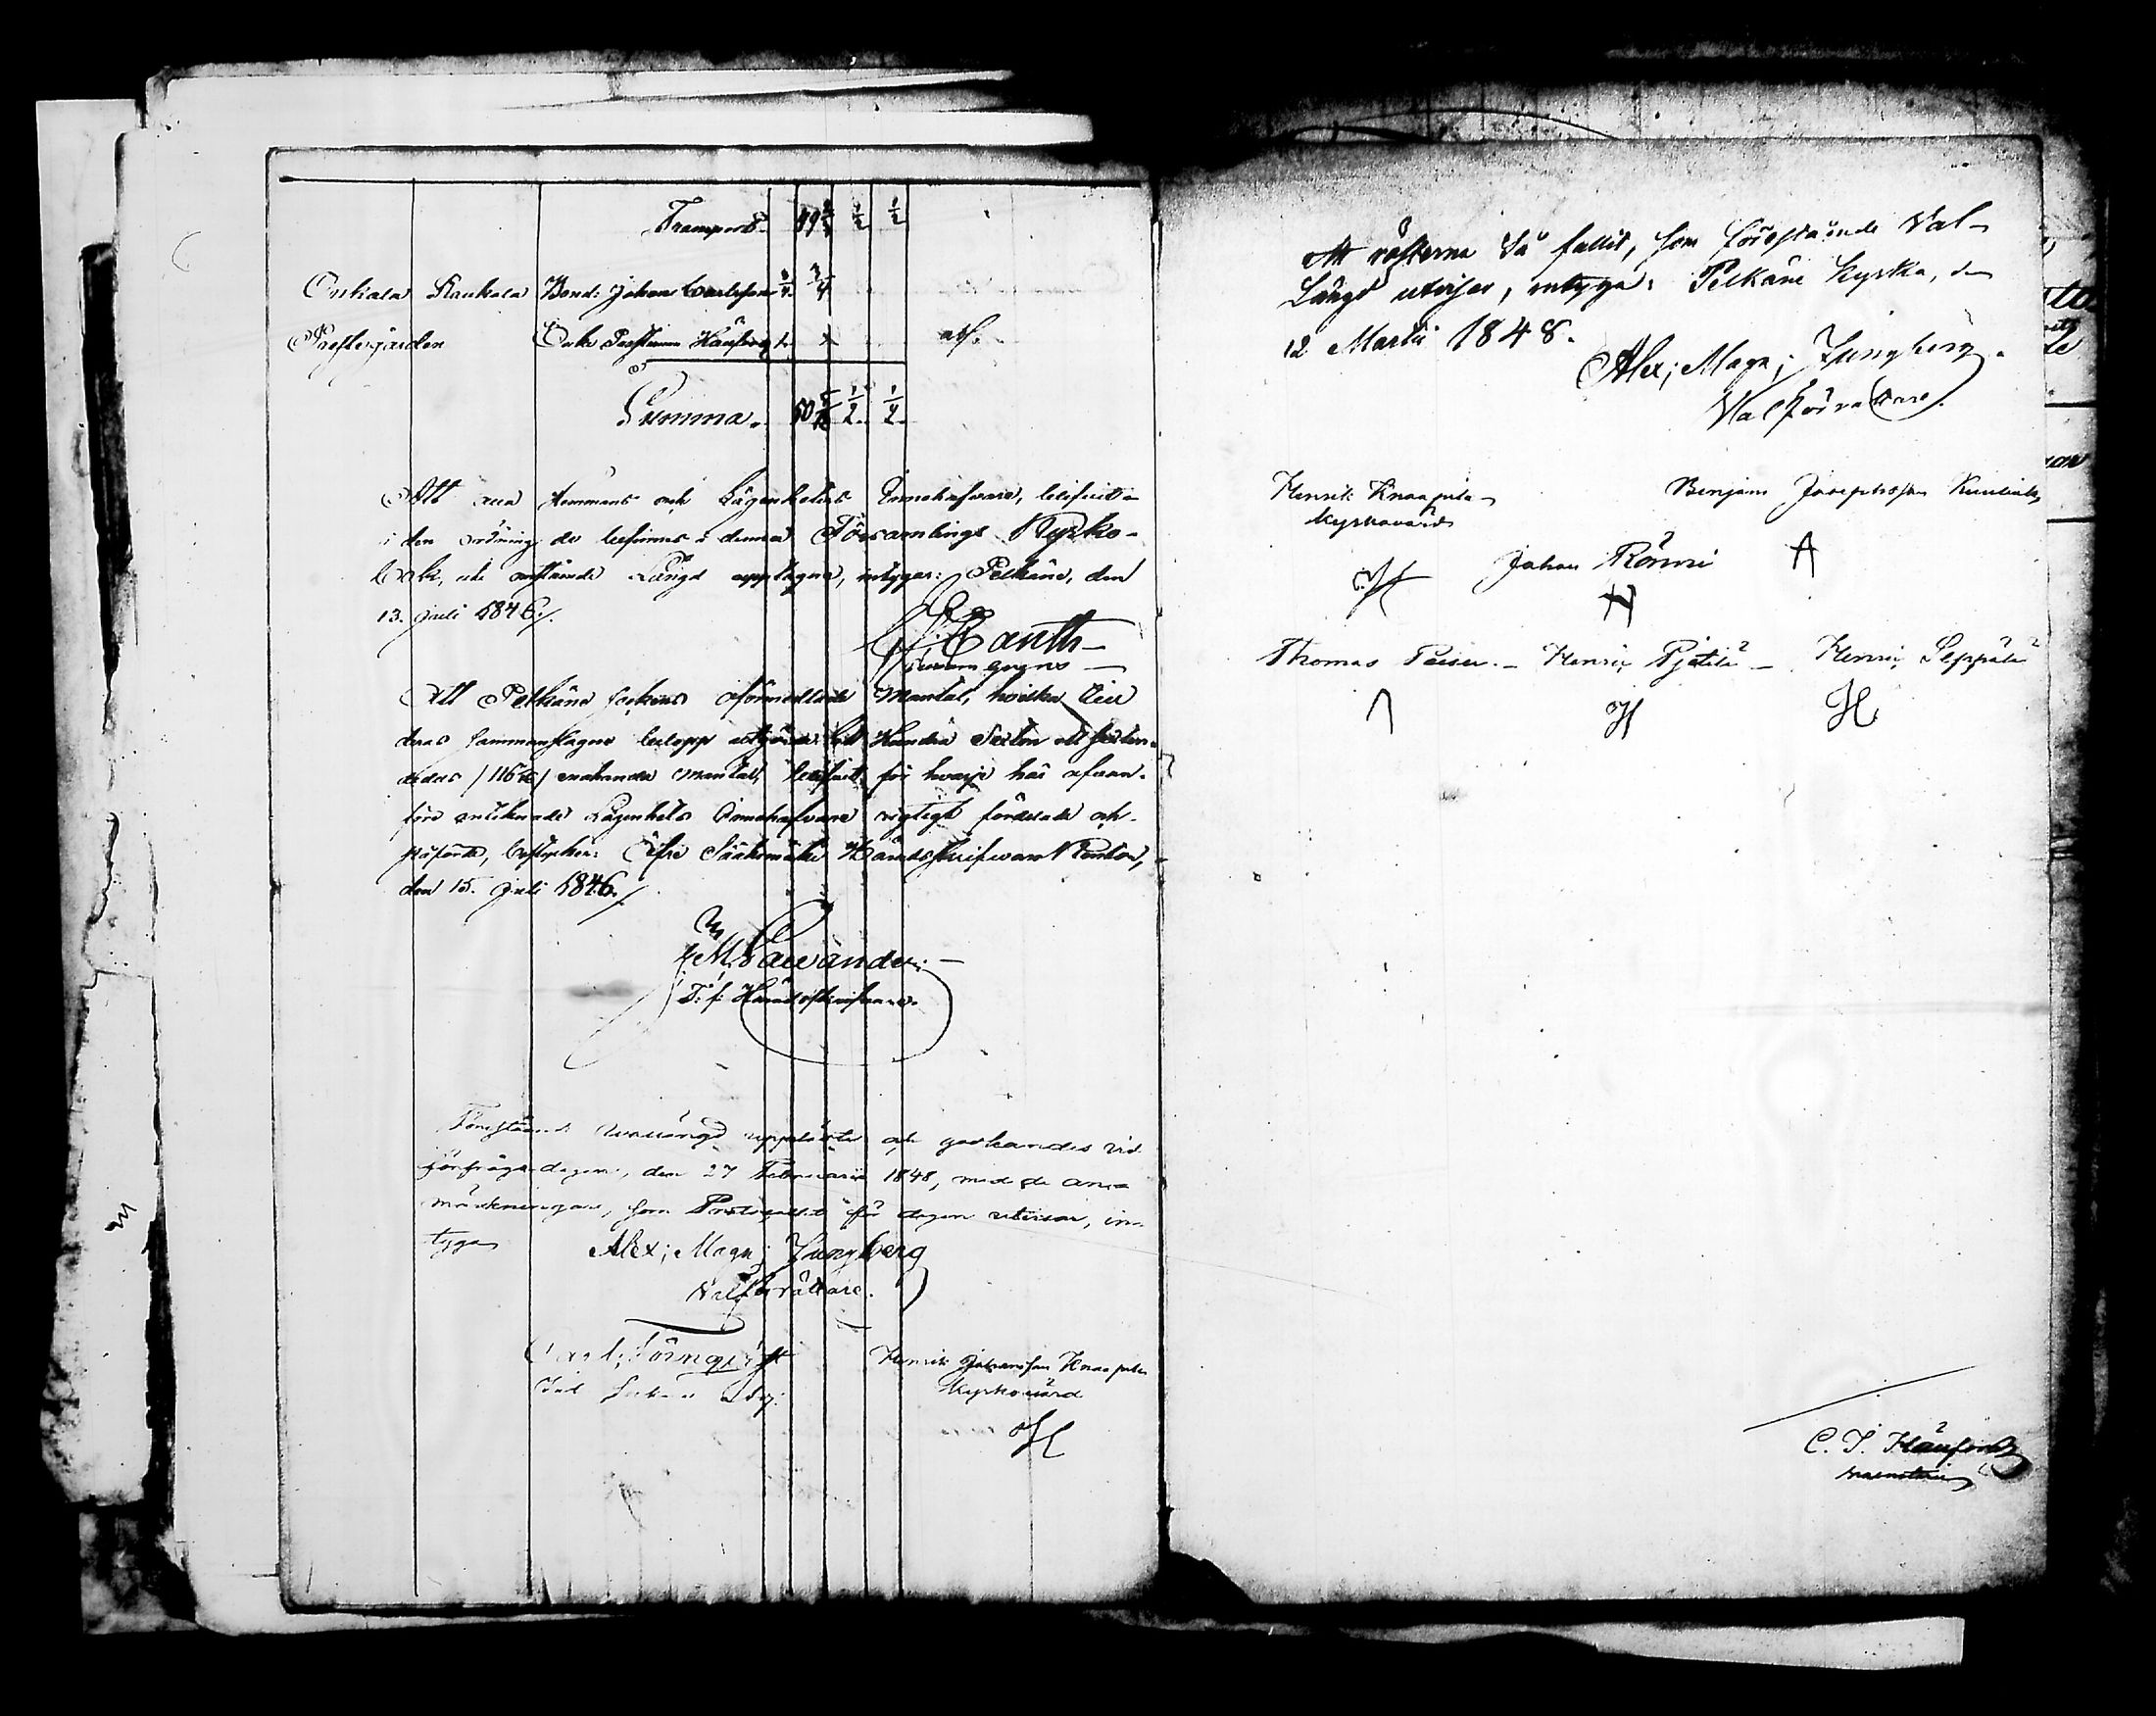 Transport. 49 1/2 1/2
Onkala Raukola Bond: Johan Carlsson 3/4 3/4
Prestegården Enk. Prostinnan
Summa. 50 1/2 1/2
Att alla Hemmans och Lägenheters Innehafvare, blifvit
i den ordning de befinnas i denna Församlings Kyrko-
bok, uti omstående Längd upptagna, intygar: Pelkäne, den
13. Juli 1846./.
Att Pelkäne Sockens oförmedlade Mantal, hvilka till
deras sammanslagne belopp utgöra Ett Hundra Sexton
/116 / Mantal, blifvit för hvarje här ofvan-
före antecknade Lägenhets Innehafvare rigtigt fördelade och
påförde, Öfre Sääksmäki Häradsskrifvare Kontor,
den 15. Juli 1846./.
T: f: Häradsskrifvare.
Förestående Vallängd upplästes och godkändes vid
förfrågodagen, den 27 Februarii 1848, med de an-
märkningar, som Protocollet för dagen utvisar, in-
tygar
Alex; Magn; Ljungberg
Valförrättare.
Carl Törnqvist
Henrik Johansson Knaapila
Kyrkovärd
Att rösterna så fallit, som förestående Val-
Längd utvisar, intyga: Pelkäne Kyrka, den
12 Martii 1848.
Alex; Magn; Ljungberg.
Valförrättare.
Henrik Knaapila
Kyrkovärd
Benjam Josephsson
Johan Rönni
Thomas Henric Pjätilä Henric Seppälä
H
C. J.